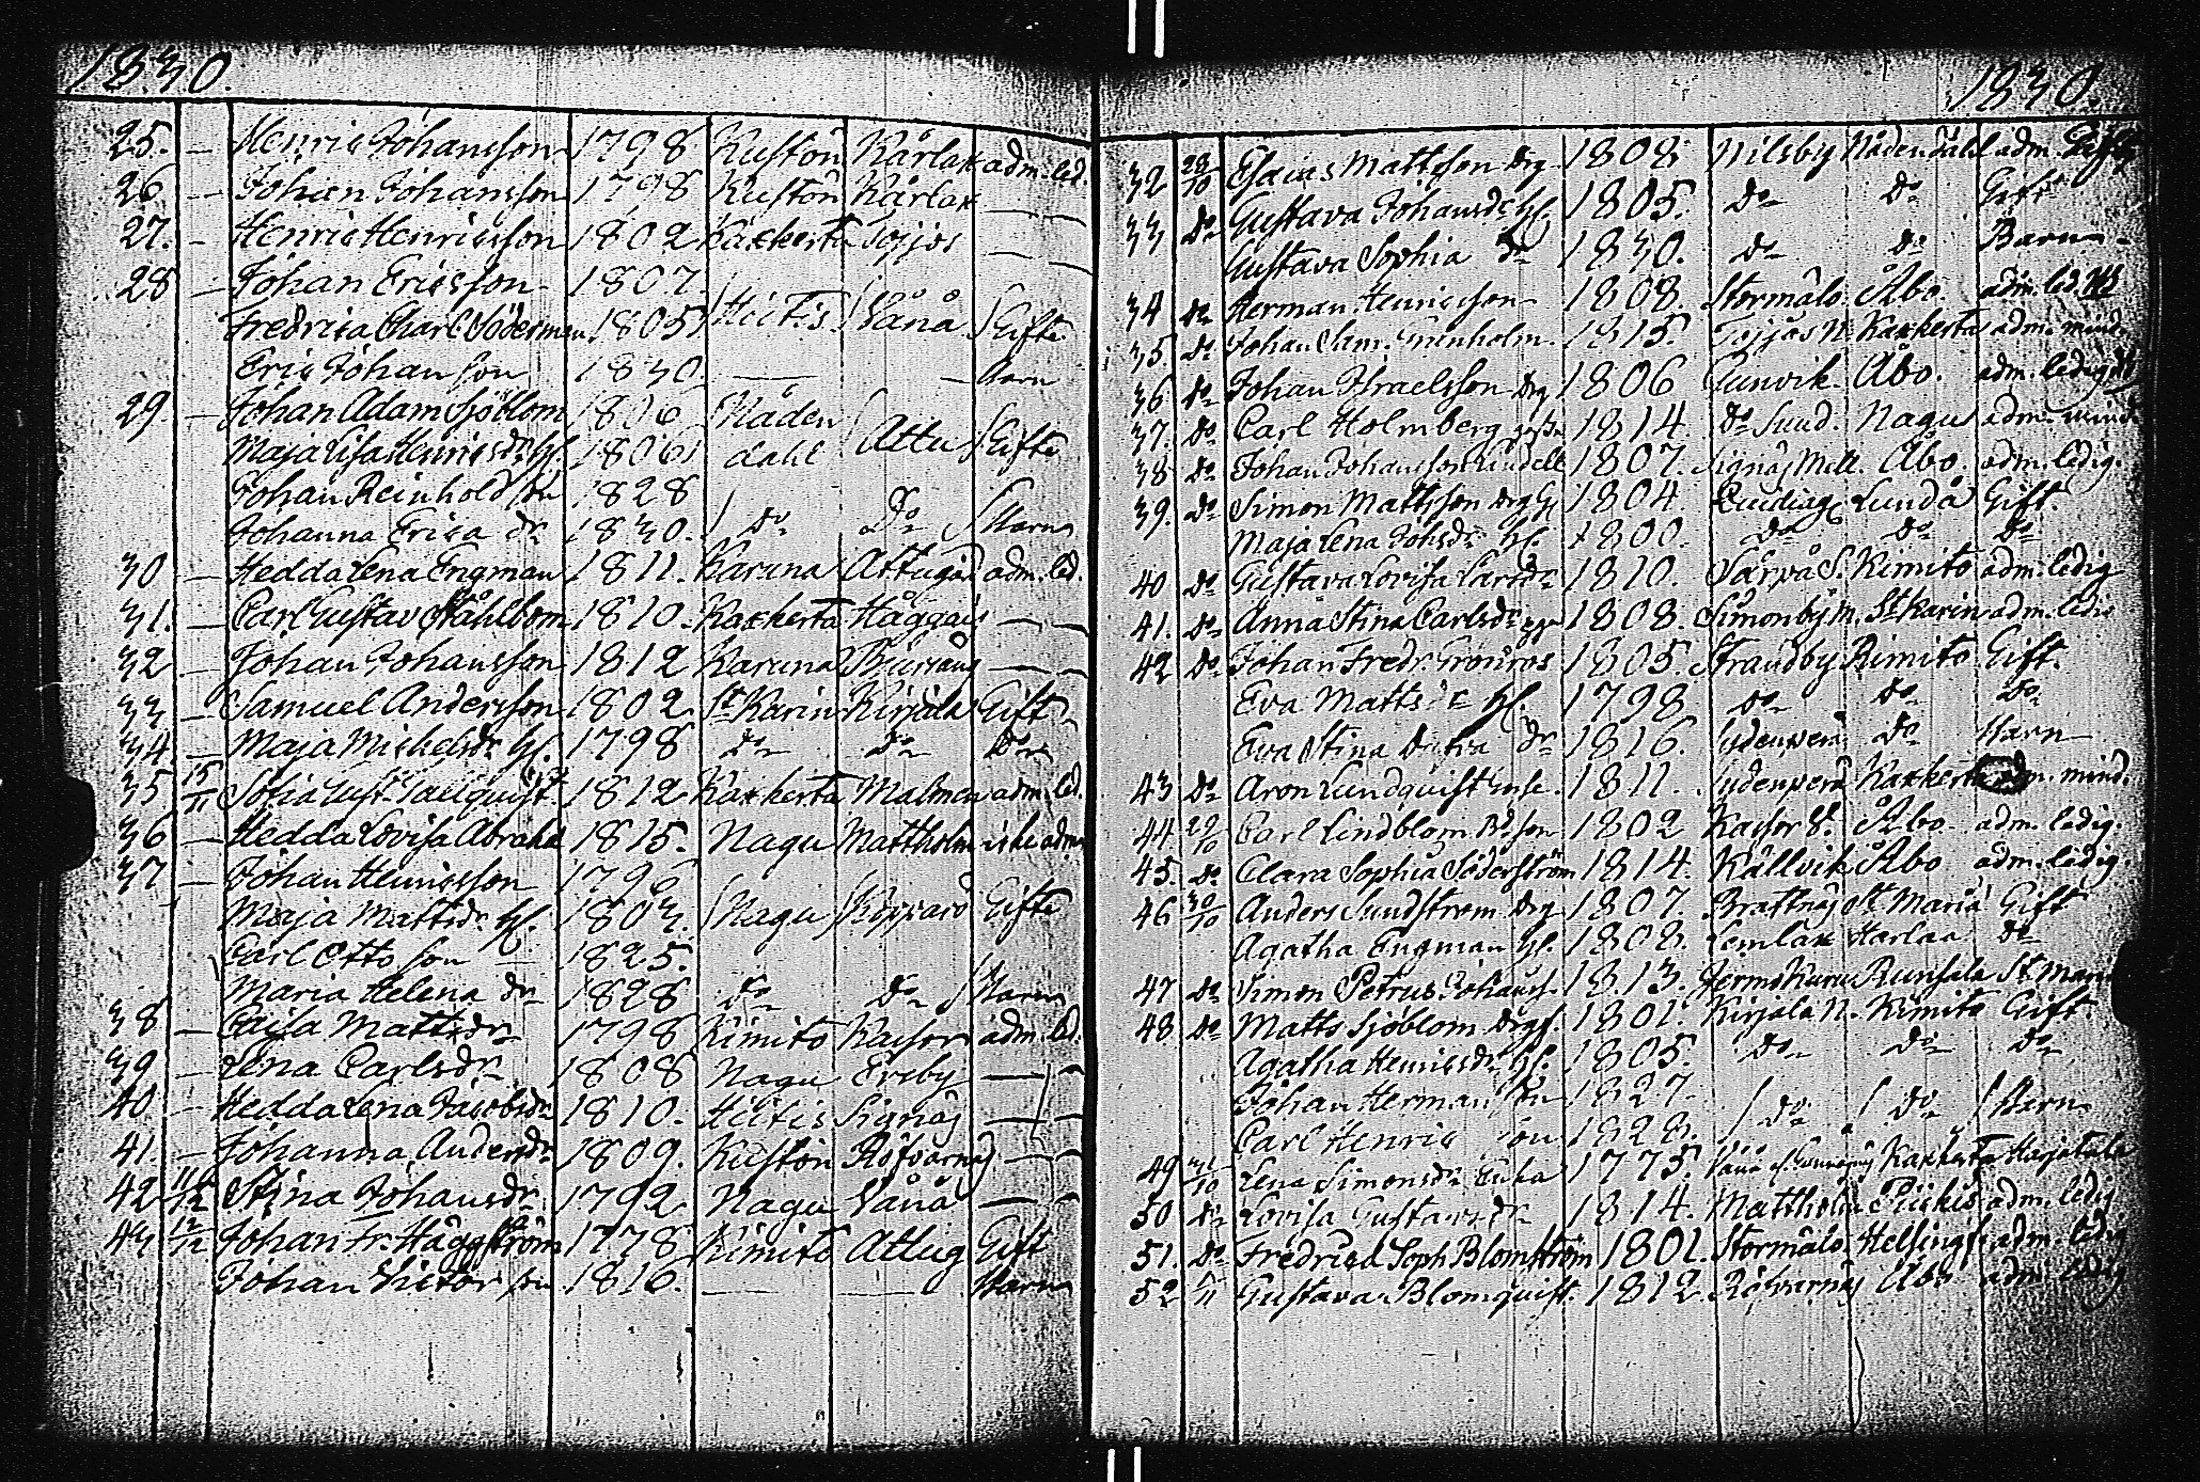 1830.
25. — Henric Johansson 1798 Kustön Kårlax adm. led.
26 — Johan Johansson 1798 Kustön Kårlax — —
27. — Henric Henricsson 1802 Kaxkerta Sojjos — —
28 — Johan Ericsson 1807.
Fredrica Charl. Söderman 1805 Hitis Vånå Gifte
Eric Johan son 1830. — — Barn
29. — Johan Adam Sjöblom 1806 Nåden
Maja Lisa Henricsdr h. 1806 dahl Attu Gifte
Johan Reinhold son 1828
Johanna Erica dr 1830. do Do Barn
30 — Hedda Lena Engman 1811. Karuna Attugård adm. led.
31. — Carl Gustav Ståhlbom 1810. Kaxkerta Häggais — —
32 — Johan Johansson 1812 Karuna — —
33 — Samuel Andersson 1802 St Karin Kirjala Gift
34. — Maja Michelsdr h. 1798 do do Do
35 15/11 Sofia Gust. 1812. Kaxkerta Malmen adm. led.
36 — Hedda Lovisa Abrahd 1815. Nagu Mattholm icke adm.
37 — Johan Henricsson 1796
Maja Mattsdr h. 1803. Nagu Kopparö Gifte
Carl Otto son — 1825.
Maria Helena dr 1828 do do Barn
38 — Caisa Mattsdr 1798 Kimito adm. led.
39 — Lena Carlsdr 1808 Nagu Ersby — —
40 — Hedda Lena Jacobsdr 1810. Hitis Signäs — —
41. — Johanna Andersdr 1809. Kustön Röfvarnäs — —
42 11/12 Stina Johansdr 1792 Nagu Vånå — —
43 12/12 Johan Fr. Häggström 1778 Kimito Attug Gift
Johan Victor son 1816. — — Barn
1830.
32 28/10 Esaias Mattsson drg 1808 Nilsby Nådendahl adm.
33 do Gustava Johansdr h. 1805. do do Gift
Gustava Sophia dr 1830. do do Barn
34 do Herman Henricsson 1808. Stormälo Åbo. adm. led.
35 do Johan Sam. Grönholm 1815. Kaxkerta adm. mind.
36 do Johan Israelsson drg 1806 Gunvik Åbo. adm. ledig
37. do Carl Holmberg 1814 do Sund. Nagu adm. mind.
38 do Johan Johansson Lindell 1807. Signäs Mell. Åbo. adm. ledig.
39. do Simon Mattsson drg 1804 Lundå Gift.
Maja Lena Johsdr h. 1800. do do do
40 do Gustava Lovisa Larsdr 1810. Särpå S. Kimito adm. ledig
41. do Anna Stina Carlsdr 1808. Simonby M. St Karin adm. ledig
42 do Johan Fredr. Grönros 1805. Strandby Kimito Gift.
Eva Mattsdr h. 1798 do do do
Eva Stina dr 1816. Sydenperä do Barn
43 do Aron Lundquist 1811. Sydenperä Kaxkerta adm. mind.
44 29/10 Carl Lindblom 1802 Åbo adm. ledig.
45. do Clara Sophia Söderström 1814. Källvik Åbo adm. ledig.
46 30/10 Anders Sundström drg 1807. Brattnäs St Maria Gift
Agatha Engman h. 1808. Lemlax Harlaa do
47 do Simon Petrus Johanss. 1813. Runsala St Maria
48 do Matts Sjöblom 1801. Kirjala N. Kimito Gift.
Agatha Henricsdr h. 1805. do do do
Johan Herman son 1827.
Carl Henric son 1828. do do Barn
49 31/10 Lena Simonsdr Enka 1775. Vånå Kaxkerta Harjatula
50 do Lovisa Gustavsdr 1814. Mattholm Piikis adm. ledig
51. do Fredrica Soph. Blomström 1801. Stormälo Helsingf. adm. ledig
52 5/11 Gustava Blomquist 1812. Röfvarnäs Åbo adm. ledig